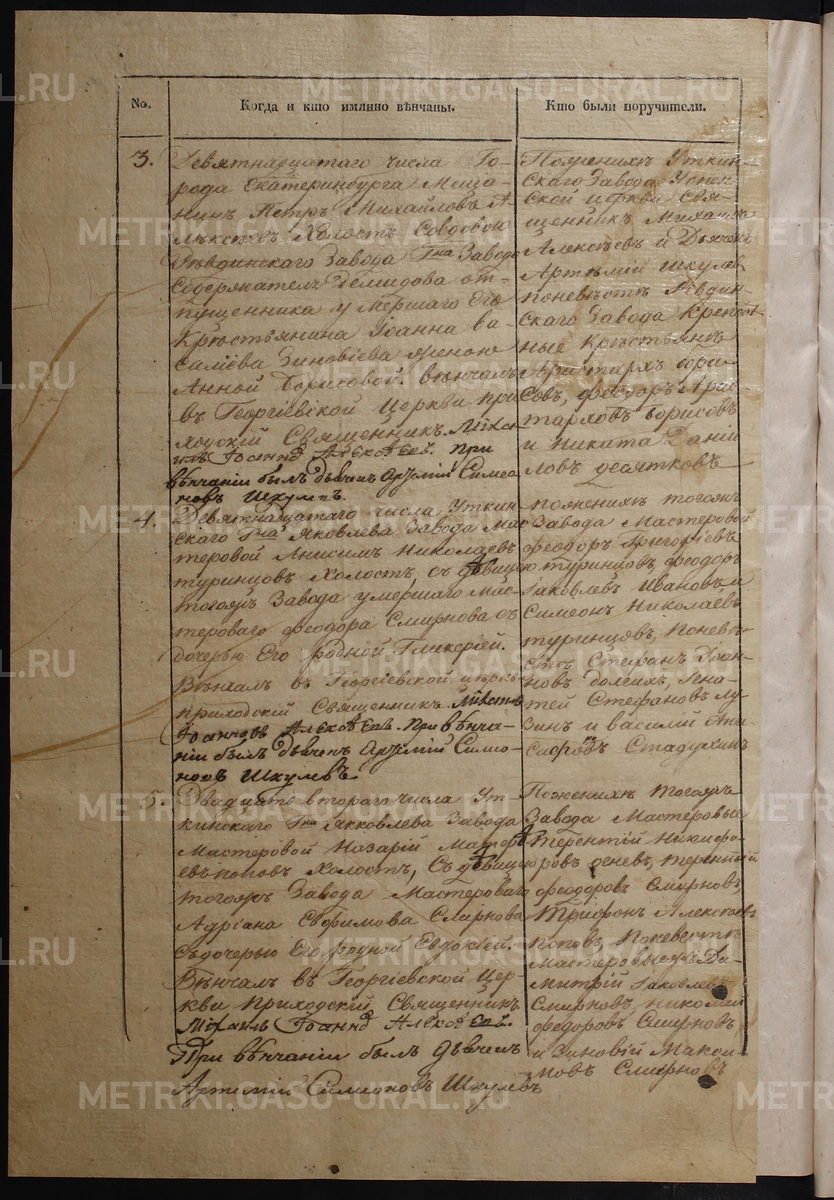 No.
Когда и кто имянно вѣнчаны.
Кто были поручители.
3.
Девятнадцатаго числа Го-
рода Екатеринбурга Меща-
нинъ Петръ Михайловъ
Холостъ, Совдовою
Ревдинскаго Завода Гна Заводо
Содержателя Демидова от-
пущенника умершаго Его
Крюстьянина Іоанна Ва-
силіева Зиновіева женою
Анной Борисовой. Вѣнчалъ
въ Георгіевской Церкви при
ходскій Священникъ. Михаи
илъ Іоанно Алексѣевъ. При
вѣнчаніи былъ дьячекъ Артемій Симео
новъ Шкулевъ.
По женихѣ Уткин-
скаго Завода Успен-
ской церкви Свя-
щенникъ Михаилъ
Алексѣевъ и Дьячекъ
Артемій Шкулевъ
по невѣстѣ Ревдин-
скаго Завода Крепост-
ные Крестьяне
Аристархъ Бори-
совъ, Феодоръ Арис-
тарховъ Борисовъ
и Никита Даніи
ловъ Десятковъ
4.
Девятнадцатаго числа Уткин-
скаго Гна Яковлева Завода Мас
теровой Анисимъ Николаевъ
Туринцовъ Холостъ, съ дѣвицею
тогожъ Завода умершаго Мас-
тероваго Феодора Смирнова съ
дочерью Его родной Гликеріей.
Вѣнчалъ въ Георгіевской церкви
приходскій Священникъ. Михаилъ
Іоанновъ Алексѣевъ. При вѣнча-
ніи былъ дьячекъ Артемій Симео-
новъ Шкулевъ
по женихѣ тогожъ
Завода Мастеровой
Феодоръ Григорьевъ
Туринцовъ, Феодоръ
Яковлевъ Ивановъ и
Симеонъ Николаевъ
Туринцовъ, По невѣ-
стѣ Стефанъ Іоан-
новъ Долгихъ, Игна-
тей Стефановъ Лу-
зинъ и Василій Ани-
симовъ Стадухинъ
5.
Двадцать втораго числа Ут-
кинскаго Гна Яковлева Завода
Мастеровой Назарій Матвѣ
евъ Поповъ Холостъ, Съ дѣвицею
тогожъ Завода Мастероваго
Адріана Евфимова Смирнова
съ дочерью Его родной Евдокіей.
Вѣнчалъ въ Георгіевской Цер-
кви Приходскій Священникъ
Михаилъ Іоанно Алексѣевъ.
При вѣнчаніи былъ дьячекъ
Артемій Симеоновъ Шкулевъ
По женихѣ тогожъ
Завода Мастеровые
Терентій Никифо-
ровъ Геневъ, Терентій
Феодоровъ Смирновъ,
Трифонъ Алексѣевъ
Поповъ, По невестѣ
Мастеровые Ди-
митрій Яковлевъ
Смирновъ, Николай
Федоровъ Смирновъ
и Зиновій Макси-
мовъ Смирновъ
METRIKI.GASU-URAL.RU